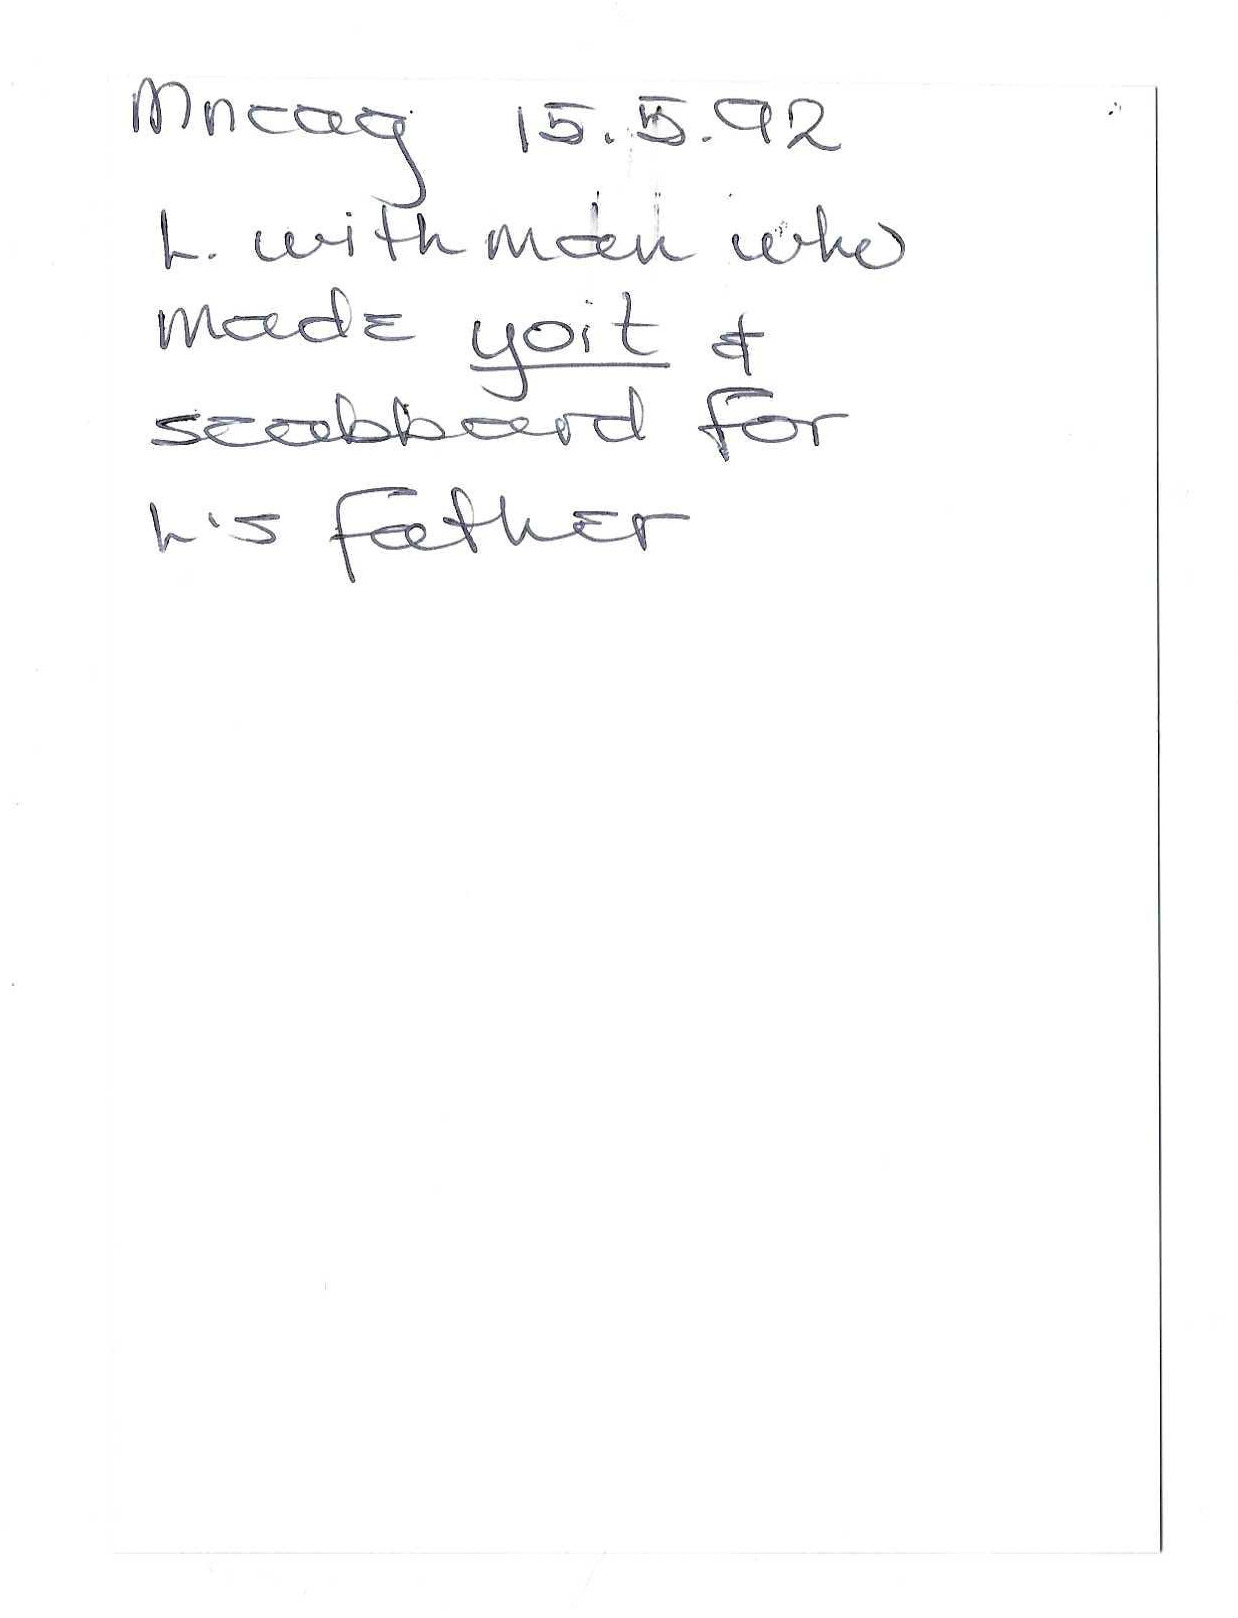 Mncag 15.5.92
L. with man who
made yoit &
scabbard for
L's father